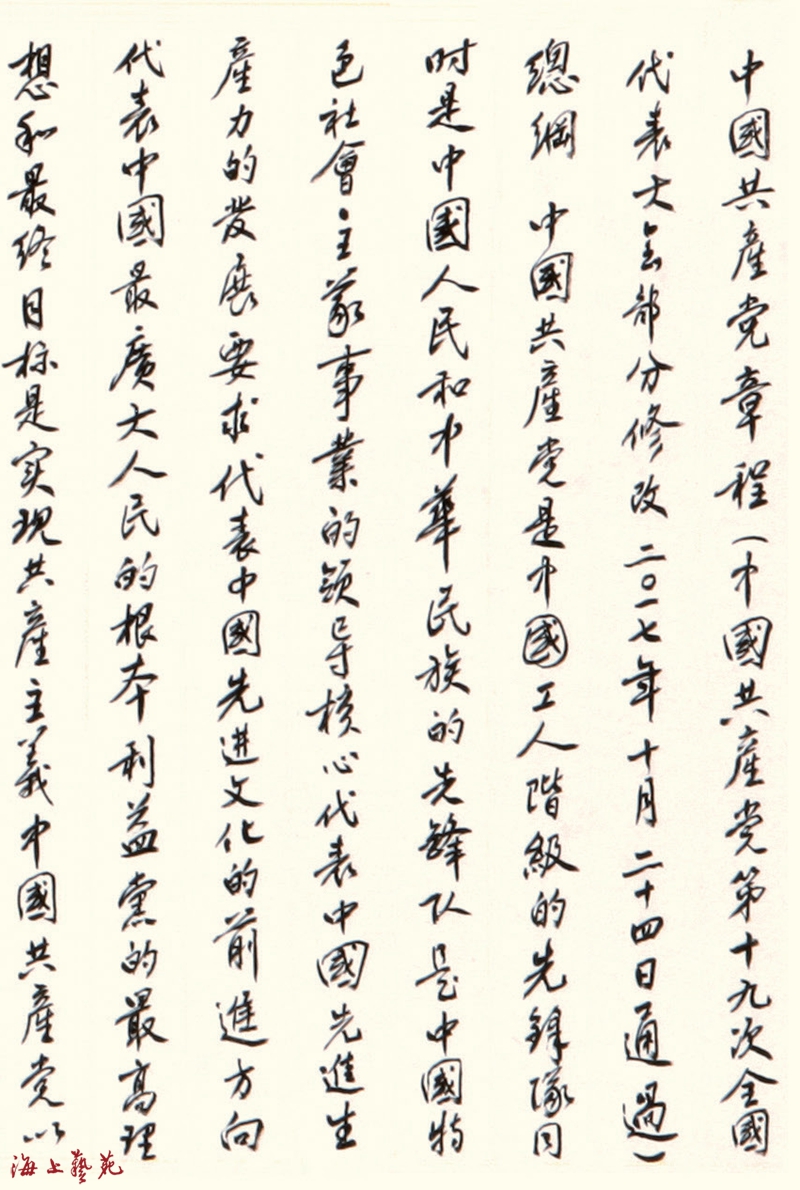 中國共產党章程（中國共產党第十九次全國
代表大会部分修改二〇一七年十月二十四日通過）
總綱　中國共產党是中國工人階級的先鋒隊同
时是中國人民和中華民族的先鋒队是中國特
色社會主義事業的领导核心代表中國先進生
產力的發展要求代表中國先进文化的前進方向
代表中國最廣大人民的根本利益黨的最高理
想和最终目标是实现共產主義中國共產党以
海上藝苑